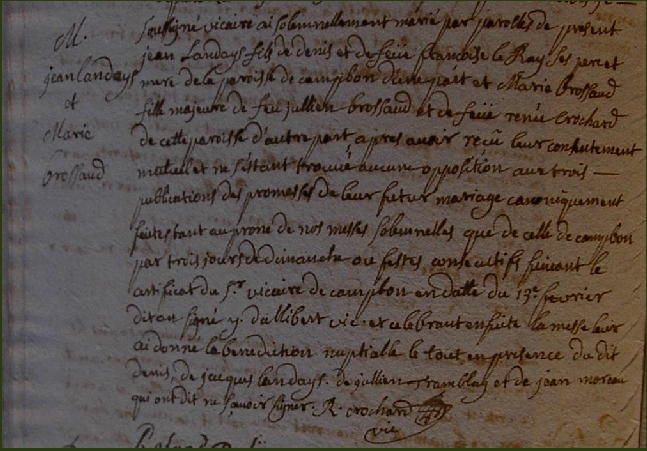 M.
jean landays
et
Marie
brossaud
soussigné vicaire ai solemnellement marié par paroles de present
jean Landays fils de denis et de feüe françoise le Ray ses pere et
mere de la paroisse de campbon d'une part et Marie brossaud
fille majeure de feu jullien brossaud et de feüe renée crochard
de cette paroisse d'autre part apres avoir reçû leur consentement
mutuel et ne s'étant trouvé aucune opposition aux trois
publications des promesses de leur futur mariage canoniquement
faites tant au prone de nos messes solemnelles que de celle de campbon
par trois jours de dimanche ou festes consecutifs suivant le
certificat du Sr. vicaire de campbon en datte du 13e fevrier
dit an signé y. dallibert vic. et celebrant ensuite la messe leur
ai donné la benediction nuptialle le tout en presence du dit
denis, de jacques landays. de jullien tramblay et de jean moreau
qui ont dit ne savoir signer. R. crochard
vic